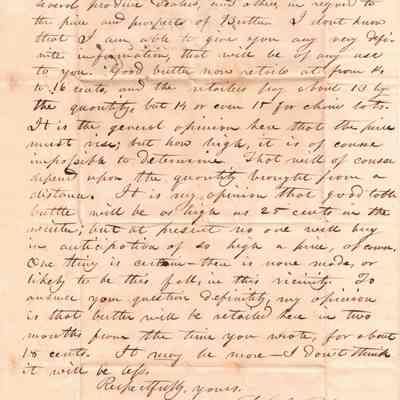 several produce dealers, and others, in regard to
the price and prospects of Butter. I dont know
that I am able to give you any very defi-
nite information, that will be of any use
to you. Good butter now retails at from 14
to 16 cents, and the retailers pay about 13 by
the quantity, but 14 or even 15 for choice lots.
It is the general opinion here that the price
must rise; but how high, it is of course
impossible to determine. That will of course
depend upon the quantity brought from a
distance. It is my opinion that good table
butter will be as high as 25 cents in the
winter; but at present no one will buy
in anticipation of so high a price, of course.
One thing is certain—there is none made, or
likely to be this fall, in this vicinity. To
answer your question definitely, my opinion
is that butter will be retailed here in two
months from the time you wrote, for about
18 cents. It may be more—I don't think
it will be less.
Respectfully, yours.